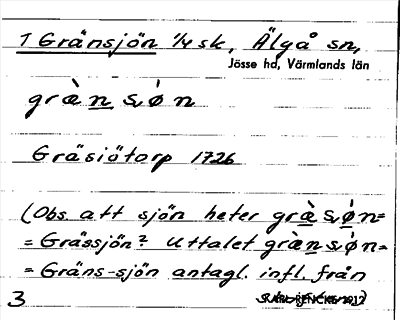 1 Gränsjön 1/4 sk, Älgå sn,
Jösse hd, Värmlands län
græ̀n sɷø̀n
Gräsiätorp 1726
(Obs. att sjön heter græ̀sɷø̀n=
= Grässjön? Uttalet græ̀nsɷø̀n=
= Gräns-sjön antagl. infl. från
3